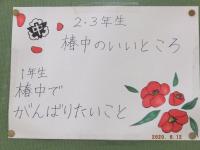 2・3年生
椿中のいいところ
1年生
椿中で
がんばりたいこと
2020. 6. 12